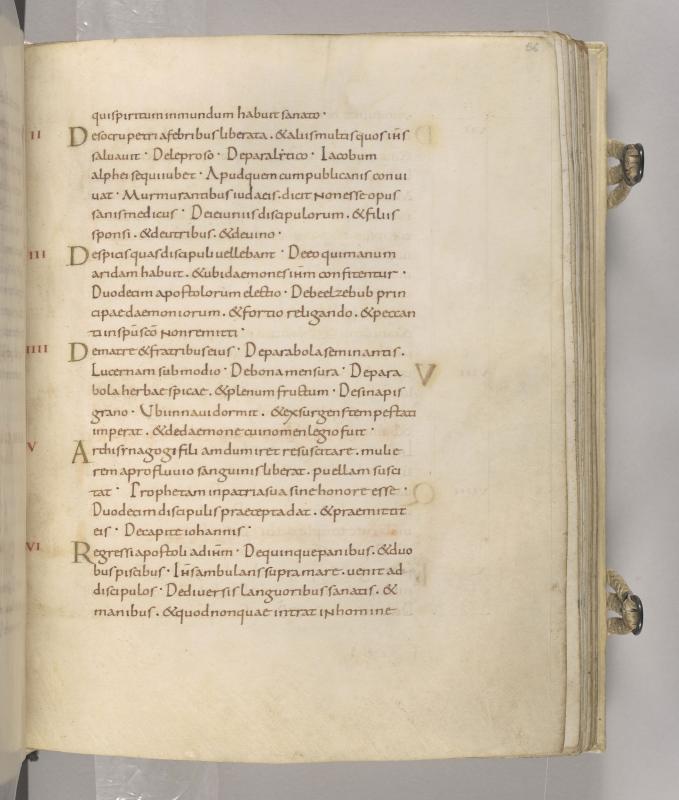 56
qui spiritum inmundum habuit sanato ·
II De socru petri a febribus liberata . & aliis multis quos ih̄s
saluauit · De leproso · De paralẏtico · Iacobum
alphei sequi iubet · Apud quem cum publicanis conui
uat · Murmurantibus iudaeis . dicit non esse opus
sanis medicus · De ieiuniis discipulorum . & filiis
sponsi . & de utribus . & de uino ·
III De spicis quas discipuli uellebant · De eo qui manum
aridam habuit . & ubi daemones ih̄m confitentur ·
Duodecim apostolorum electio · De beelzebub prin
cipae daemoniorum . & fortio religando . & peccan
ti in sp̄u sc̄o non remitti ·
IIII De matre & fratribus eius · De parabola seminantis .
Lucernam sub modio · De bona mensura · De para
bola herbae spicae . & plenum fructum · De sinapis
grano · Ubi in naui dormit . & exsurgens tempestati
imperat . & de daemone cui nomen legio fuit ·
V Archisẏnagogi filiam dum iret resuscitare . mulie
rem a profluuio sanguinis liberat . puellam susci
tat · Prophetam in patria sua sine honore esse ·
Duodecim discipulis praecepta dat . & praemittit
eis · De capite iohannis ·
VI Regressi apostoli ad ih̄m · De quinque panibus . & duo
bus piscibus · Ih̄s ambulans supra mare . uenit ad
discipulos · De diuersis languoribus sanatis . &
manibus . & quod non quae intrat in homine